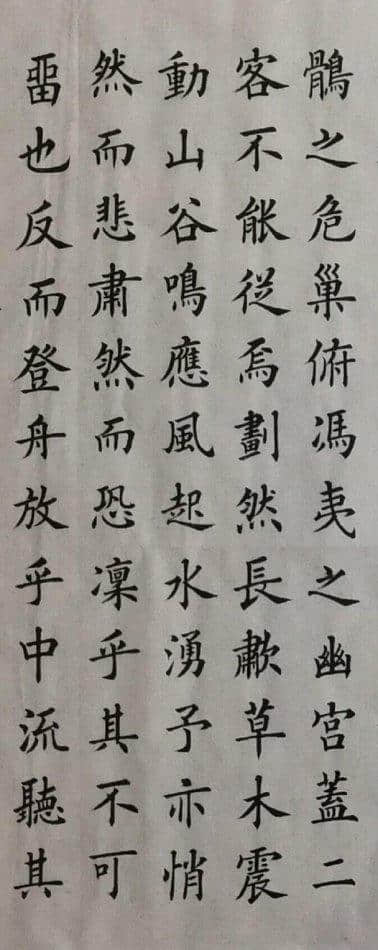 鶻之危巢俯馮夷之幽宮蓋二
客不能從焉劃然長歗草木震
動山谷鳴應風起水湧予亦悄
然而悲肅然而恐凜乎其不可
畱也反而登舟放乎中流聽其